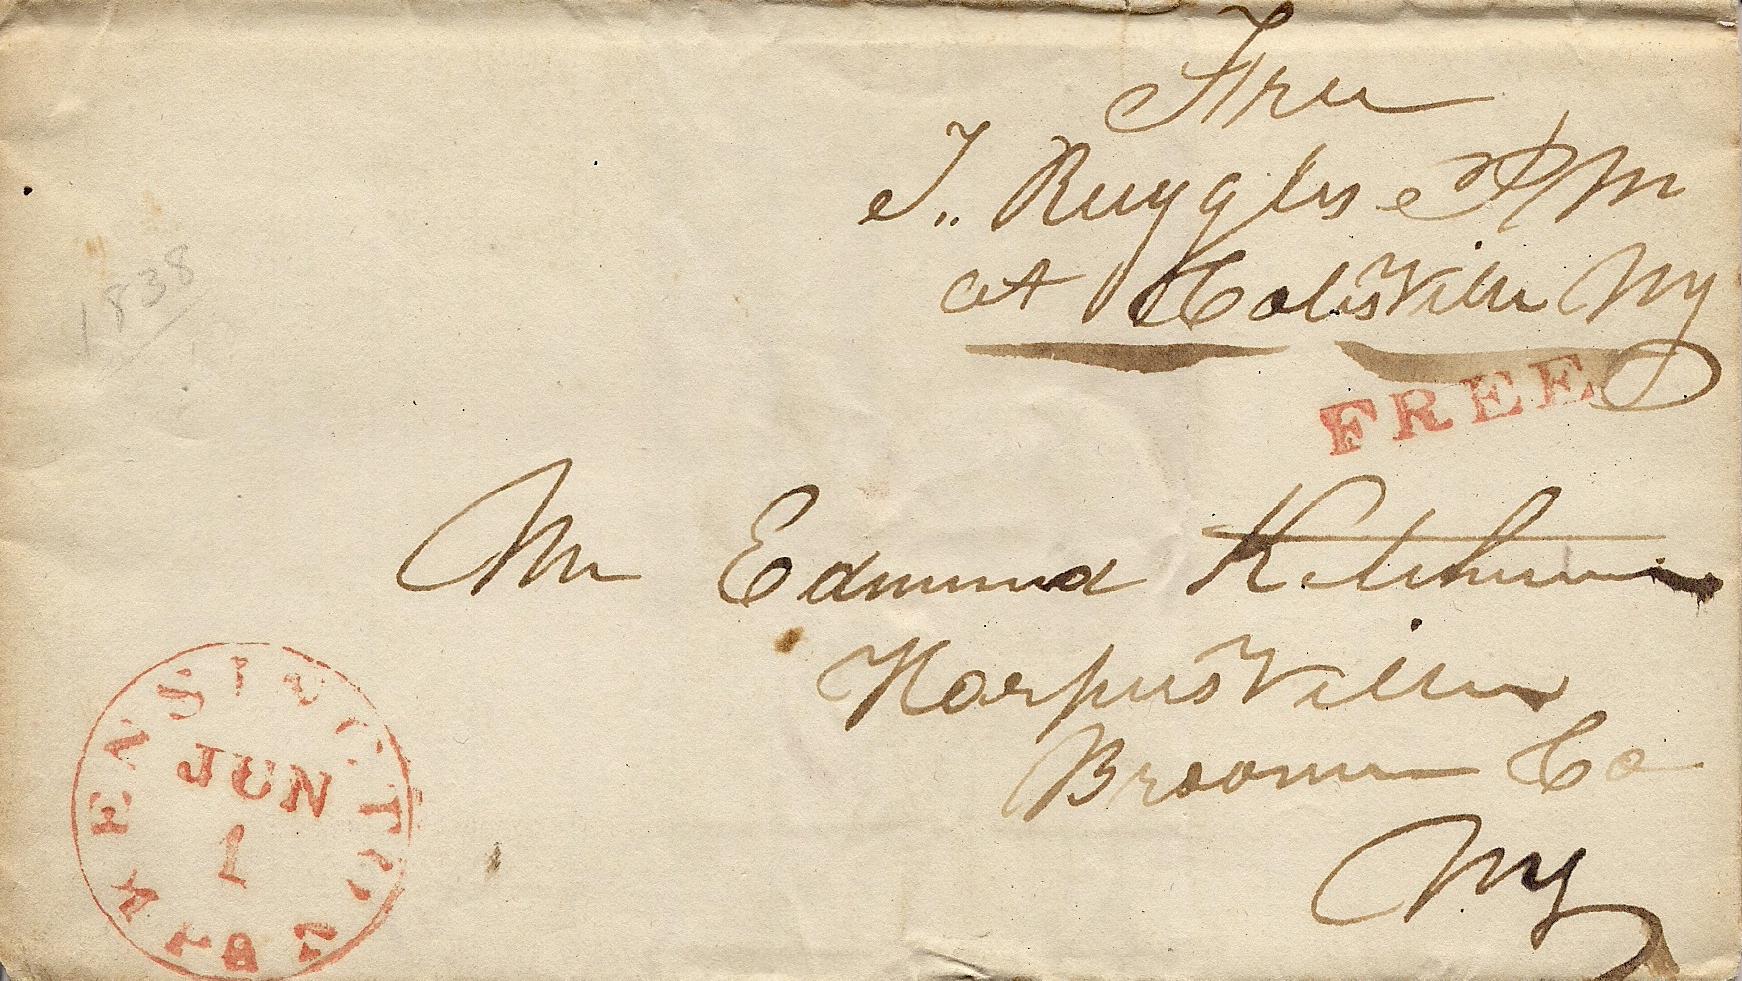 Free
J. Ruggles PM
at Colesville NY
1838
FREE
Mr Edmund Ketchum
Harpusville
Broome Co
NY
KENSINGTON PA
JUN
1